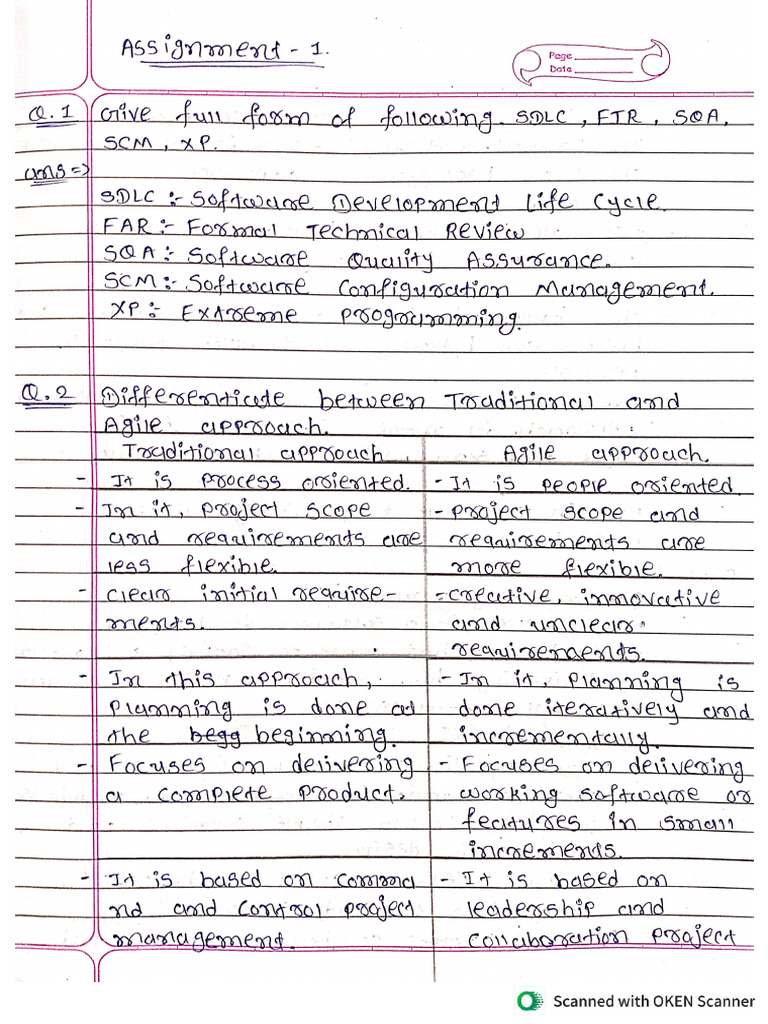 Assignment - 1.
Page
Date
Q.1 Give full form of following. SDLC, FTR, SQA,
SCM, XP.
ans =>
SDLC :- Software Development Life Cycle.
FAR :- Formal Technical Review
SQA :- Software Quality Assurance.
SCM :- Software Configuration Management.
XP :- Extreme Programming.
Q.2 Differentiate between Traditional and
Agile approach.
Traditional approach
- It is process oriented.
- In it, project scope
and requirements are
less flexible.
- clear initial require-
ments.
- In this approach,
planning is done at
the begg beginning.
- Focuses on delivering
a complete product.
- It is based on comma
nd and control project
management.
Agile approach.
- It is people oriented.
- project scope and
requirements are
more flexible.
- creative, innovative
and unclear
requirements.
- In it, planning is
done iteratively and
incrementally.
- Focuses on delivering
working software or
features in small
increments.
- It is based on
leadership and
collaboration project
Scanned with OKEN Scanner